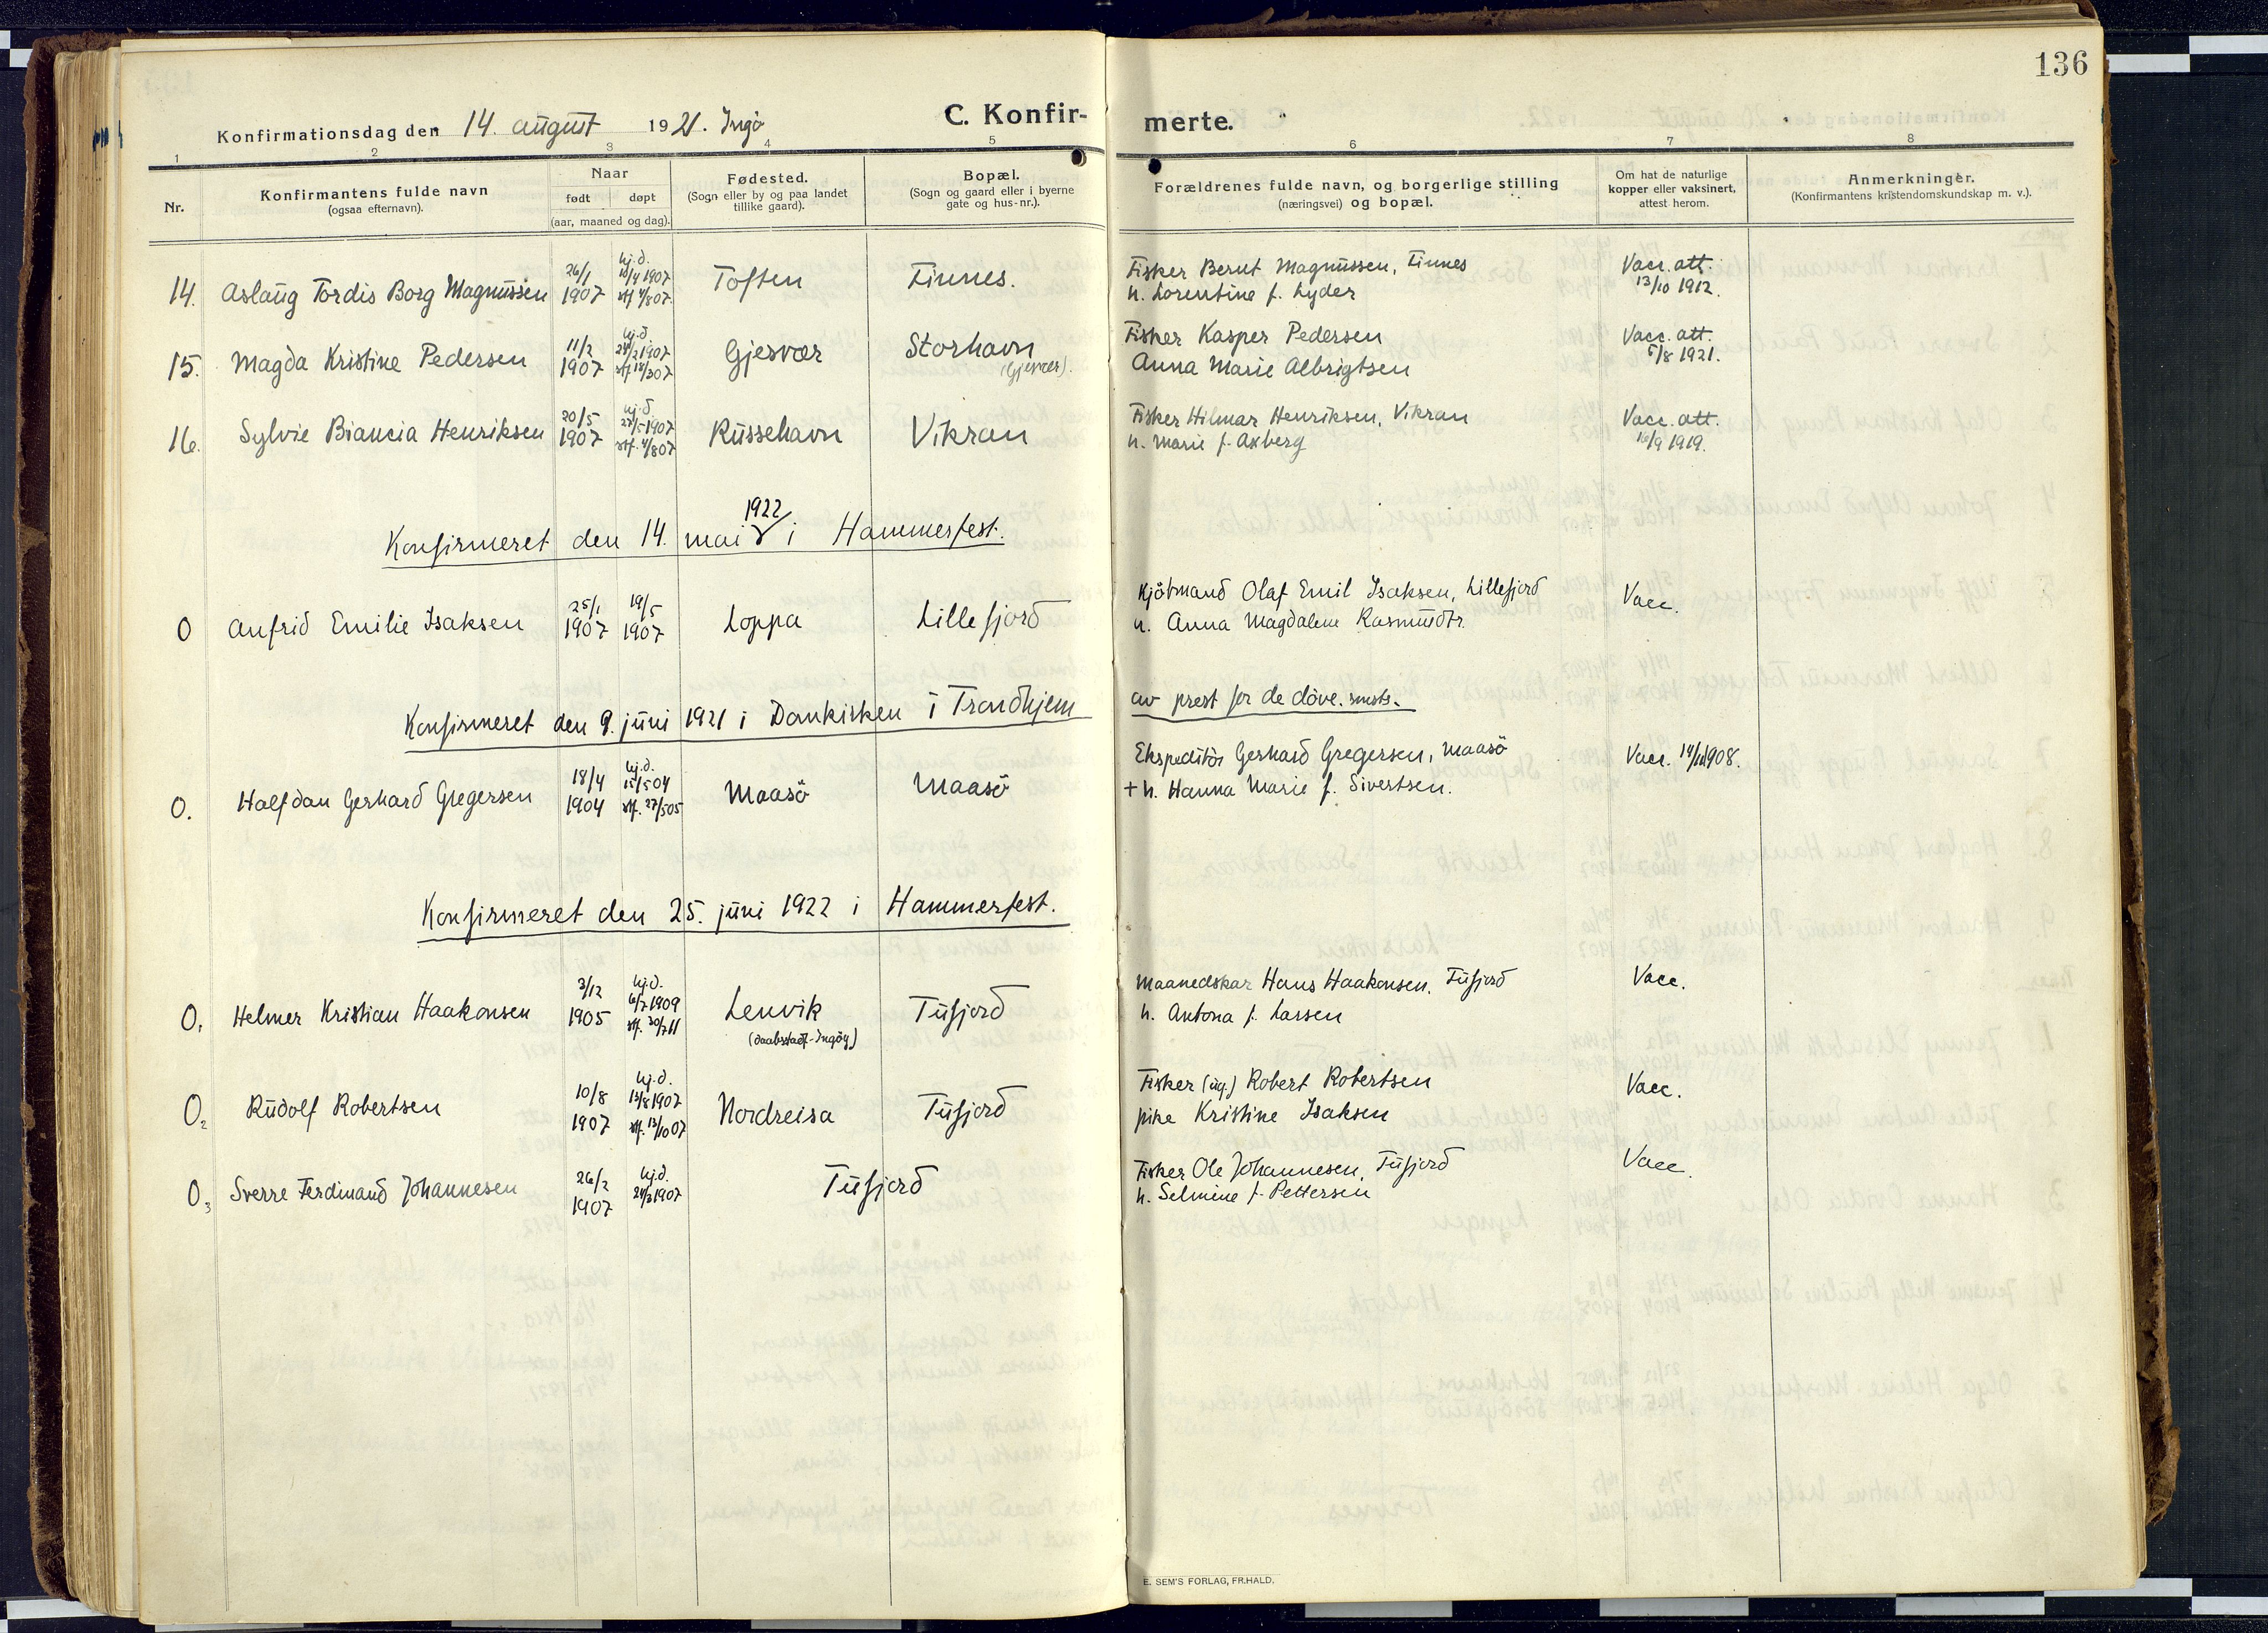 136
Konfirmationsdag den 14. august 1921. Ingö
C. Konfir-
merte.
1 2 3 4 5 6 7 8
Nr.
Konfirmantens fulde navn
(ogsaa efternavn).
Naar
født døpt
(aar, maaned og dag).
Fødested.
(Sogn eller by og paa landet
tillike gaard).
Bopæl.
(Sogn og gaard eller i byerne
gate og hus-nr.).
Forældrenes fulde navn, og borgerlige stilling
(næringsvei) og bopæl.
Om hat de naturlige
kopper eller vaksinert,
attest herom.
Anmerkninger.
(Konfirmantens kristendomskundskap m. v.).
14. Aslaug Tordis Borg Magnussen 26/1 1907 hj.d. 1907 stf. 4/8 07 Toften Finnes.
Fisker Bernt Magnussen, Finnes
h. Lorentine f. Lyder
Vacc. att.
13/10 1912.
15. Magda Kristine Pedersen 11/2 1907 hj.d. 24/2 1907 stf. 07 Gjesvær Storhavn
(Gjesvær).
Fisker Kasper Pedersen
Anna Marie Albrigtsen
Vacc. att.
5/8 1921.
16. Sylvie Biancia Henriksen 20/5 1907 hj.d. 27/5 1907 stf. 4/8 07 Russehavn Vikran
Fisker Hilmar Henriksen, Vikran
h. Marie f. Axberg
Vacc. att.
16/9 1919.
Konfirmeret den 14. mai 1922 i Hammerfest.
0 Anfrid Emilie Isaksen 25/1 1907 19/5 1907 Loppa Lillefjord
Kjöbmand Olaf Emil Isaksen, Lillefjord
h. Anna Magdalene Rasmusdtr.
Vacc.
Konfirmeret den 9. juni 1921 i Domkirken i Trondhjem
av prest for de döve.
0. Halfdan Gerhard Gregersen 18/4 1904 hj.d. 15/5 04 stf. 27/5 05 Maasö Maasö
Ekspeditör Gerhard Gregersen, Maasö
+ h. Hanna Marie f. Sivertsen.
Vacc. 1908.
Konfirmeret den 25. juni 1922 i Hammerfest.
0, Helmer Kristian Haakonsen 3/12 1905 hj.d. 6/7 1909 stf. 30/7 11 Lenvik Tufjord
(daabsted - Ingöy)
Maanedskar Hans Haakonsen, Tufjord
h. Antona f. Larsen
Vacc.
0₂ Rudolf Robertsen 10/8 1907 hj.d. 13/8 1907 stf. 13/10 07 Nordreisa Tufjord
Fisker (ug.) Robert Robertsen
pike Kristine Isaksen
Vacc.
0₃ Sverre Ferdinand Johannesen 26/2 1907 hj.d. 1907 Tufjord
Fisker Ole Johannesen, Tufjord
h. Selmine f. Pettersen
Vacc.
E. SEM'S FORLAG, FR.HALD.